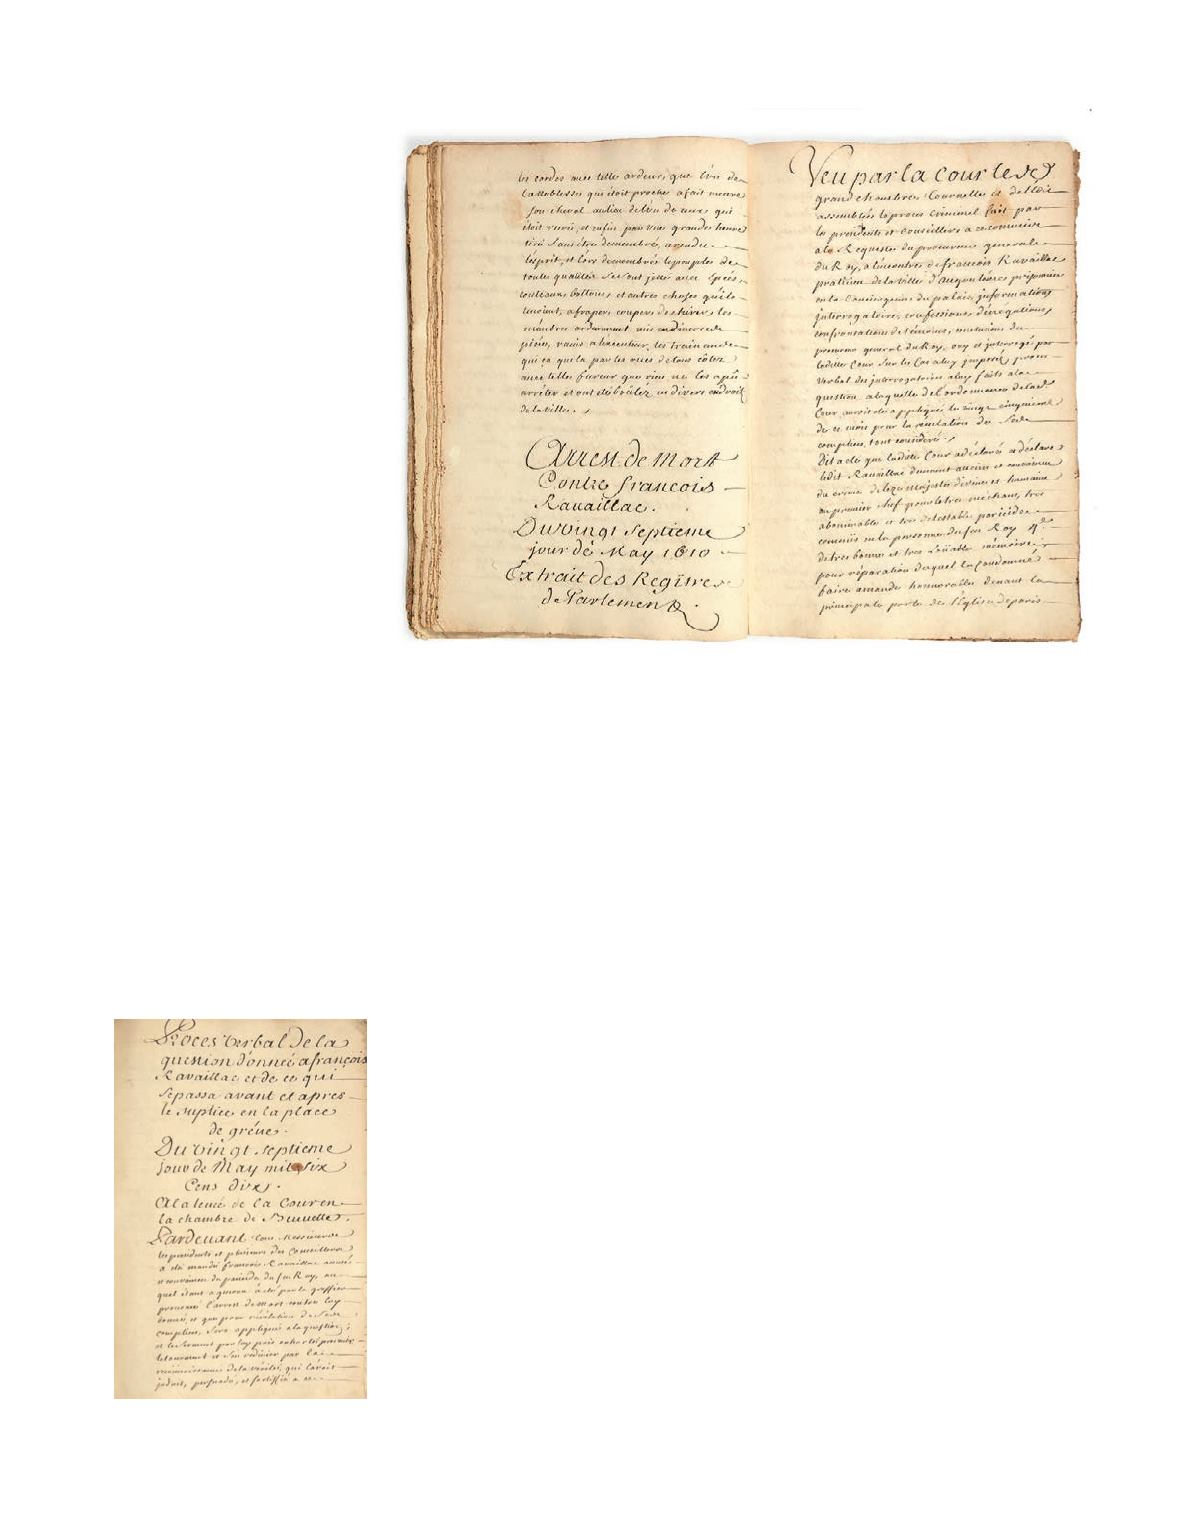 les cordes avec telle ardeur, que l'un de
la noblesse qui étoit proche a fait mettre
son cheval au lieu de l'un de ceux qui
étoit recreu, et enfin par une grande heure
tiré sans être demembré, a rendu
l'esprit, et lors demembré le peuple de
toute qualité se sont jetté avec épées,
couteaux, battons, et autres choses qu'ils
tenoient, a fraper, couper, dechirer les
membres ardemment mis en diverses
pieces, ravis a l'executeur, les trainans
qui ça qui la par les rues de tous côtez
avec telle fureur que rien ne les a pû
arrêter et ont été brûlez en divers endroits
de la ville.
Arrest de Mort
Contre francois
Ravaillac.
Du vingt septieme
jour de May 1610
Extrait des Regîtres
de Parlement.
Veu par la cour les
grand chambres Tournelle et de l'Edit
assemblés le procés criminel fait par
les presidents et conseillers a ce commis
a la Requeste du procureur general
du Roy, a l'encontre de francois Ravaillac
praticien de la ville d'Angoulême prisonnier
en la Conciergerie du palais, informations
interrogatoire, confessions, denegations,
confrontations de témoins, conclusions du
procureur general du Roy, ouy et interrogé par
ladite Cour sur les Cas a luy imposés, procez
verbal des interrogatoires a luy faits a la
question a laquelle de l'ordonnance de lad.
Cour auroit été appliqué le vingt cinquieme
de ce mois pour la revelation de ses
complices, tout consideré.
dit a été que ladite Cour a déclaré et déclare
ledit Ravaillac duement atteint et convaincu
du crime de leze majesté divine et humaine
au premier chef pour le tres mechant, tres
abominable et tres detestable parricide
commis en la personne du feu Roy 4e
de tres bonne et tres loüable mémoire
pour réparation duquel l'a condamné
faire amande honnorable devant la
principale porte de l'Eglise de paris
Procés verbal de la
question donnée a françois
Ravaillac et de ce qui
se passa avant et apres
le suplice en la place
de gréve.
Du vingt septieme
jour de May mil six
Cens dix.
A la levée de la Cour en
la chambre de Buvette.
Pardevant tous Messieurs
les presidents et plusieurs des Conseillers
a été mandé francois Ravaillac accusé
et convaincu du parricide du feu Roy, au
quel étant a genoux a été par le greffier
prononcé l'arrest de mort contre luy
donné, et que pour révélation de ses
complices, sera appliqué a la question;
et le serment par luy pris exhorté prevenir
le tourment et s'en redimer par la
reconnoissance de la verité, qui l'avoit
induit, persuadé, et fortiffié a ce